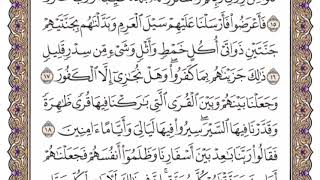 ۝١٥ فَأَعْرَضُوا۟ فَأَرْسَلْنَا عَلَيْهِمْ سَيْلَ ٱلْعَرِمِ وَبَدَّلْنَٰهُم بِجَنَّتَيْهِمْ
جَنَّتَيْنِ ذَوَاتَىْ أُكُلٍ خَمْطٍ وَأَثْلٍ وَشَىْءٍ مِّن سِدْرٍ قَلِيلٍ
۝١٦ ذَٰلِكَ جَزَيْنَٰهُم بِمَا كَفَرُوا۟ ۖ وَهَلْ نُجَٰزِىٓ إِلَّا ٱلْكَفُورَ ۝١٧
وَجَعَلْنَا بَيْنَهُمْ وَبَيْنَ ٱلْقُرَى ٱلَّتِى بَٰرَكْنَا فِيهَا قُرًى ظَٰهِرَةً
وَقَدَّرْنَا فِيهَا ٱلسَّيْرَ ۖ سِيرُوا۟ فِيهَا لَيَالِىَ وَأَيَّامًا ءَامِنِينَ
۝١٨ فَقَالُوا۟ رَبَّنَا بَٰعِدْ بَيْنَ أَسْفَارِنَا وَظَلَمُوٓا۟ أَنفُسَهُمْ فَجَعَلْنَٰهُمْ